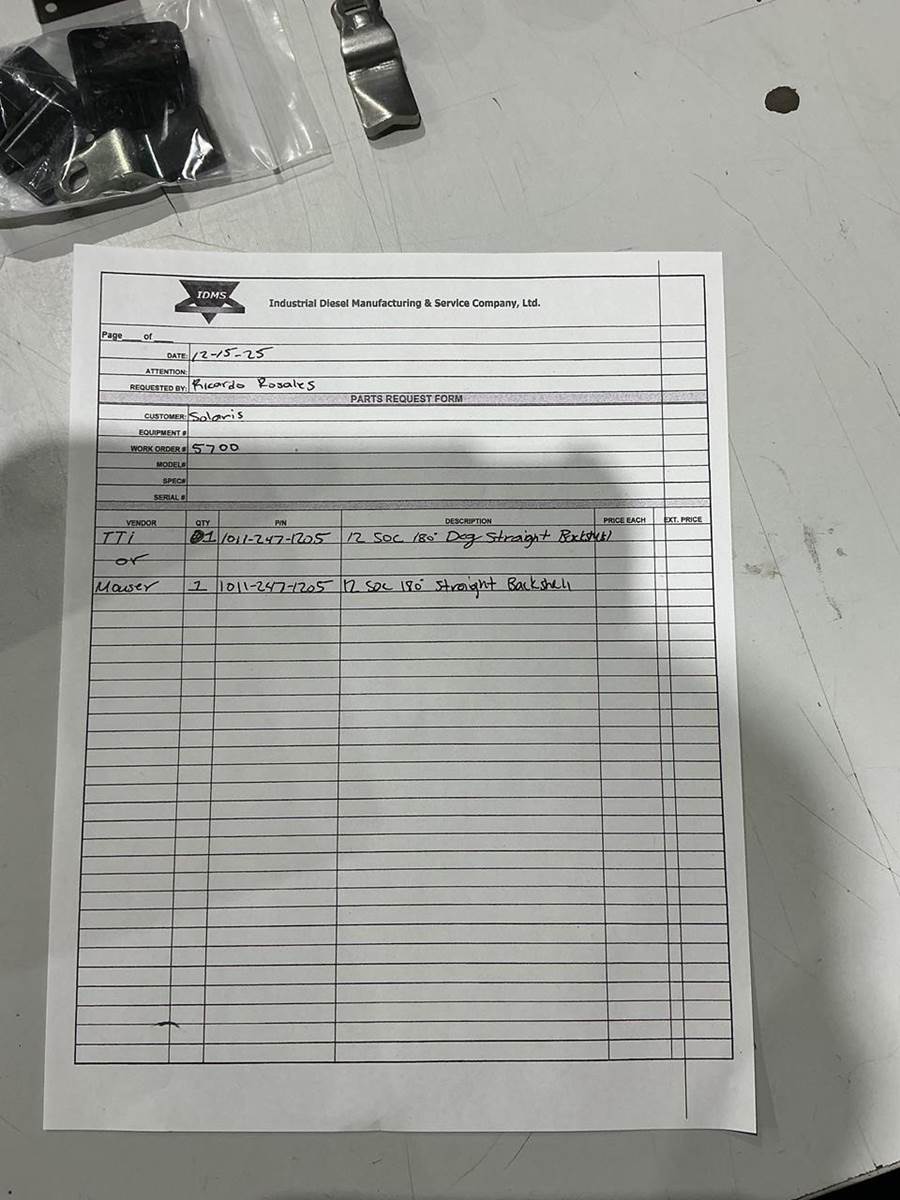 IDMS
Industrial Diesel Manufacturing & Service Company, Ltd.
Page___ of ___
DATE: 12-15-25
ATTENTION:
REQUESTED BY: Ricardo Rosales
PARTS REQUEST FORM
CUSTOMER: Solaris
EQUIPMENT #
WORK ORDER # 5700
MODEL#
SPEC#
SERIAL #
VENDOR QTY P/N DESCRIPTION PRICE EACH EXT. PRICE
TTi 1 1011-247-1205 12 SOC 180° Deg Straight Backshell
or
Mouser 1 1011-247-1205 12 SOC 180° Straight Backshell